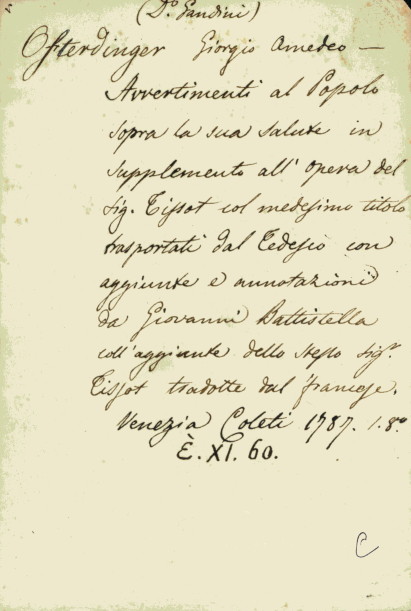 (D.º Gandini)
Osterdinger Giorgio Amedeo —
Avvertimenti al Popolo
sopra la sua salute in
supplemento all'opera del
sig. Tissot col medesimo titolo
trasportati dal Tedesco con
aggiunte e annotazioni
da Giovanni Battistella
coll'aggiunte dello stesso sig.r
Tissot tradotte dal francese.
Venezia Coleti 1787. 1. 8.º
È. XI. 60.
C